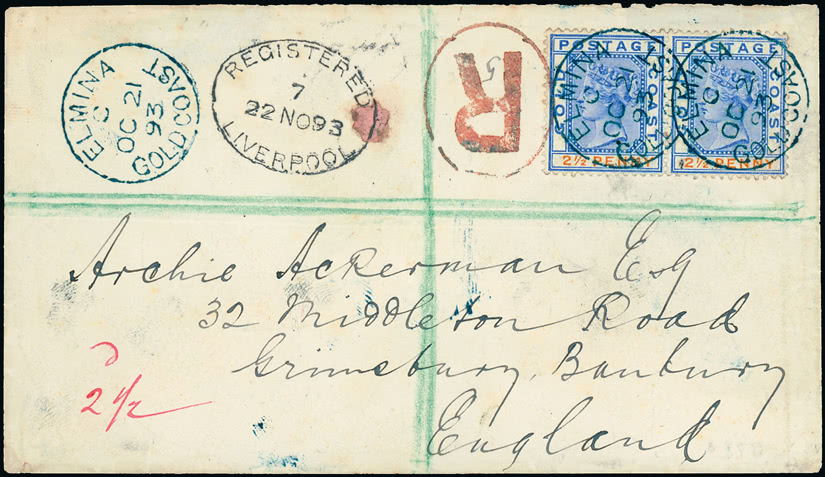 ELMINA
C
OC 21
93
GOLD COAST
REGISTERED
7
22 NO 93
LIVERPOOL
R
5
POSTAGE
GOLD COAST
2½ PENNY
POSTAGE
GOLD COAST
2½ PENNY
ELMINA
C
OC 21
93
GOLD COAST
ELMINA
C
OC 21
93
GOLD COAST
Archie Ackerman Esq
32 Middleton Road
Grimsbury, Banbury
England
d
2 1/2